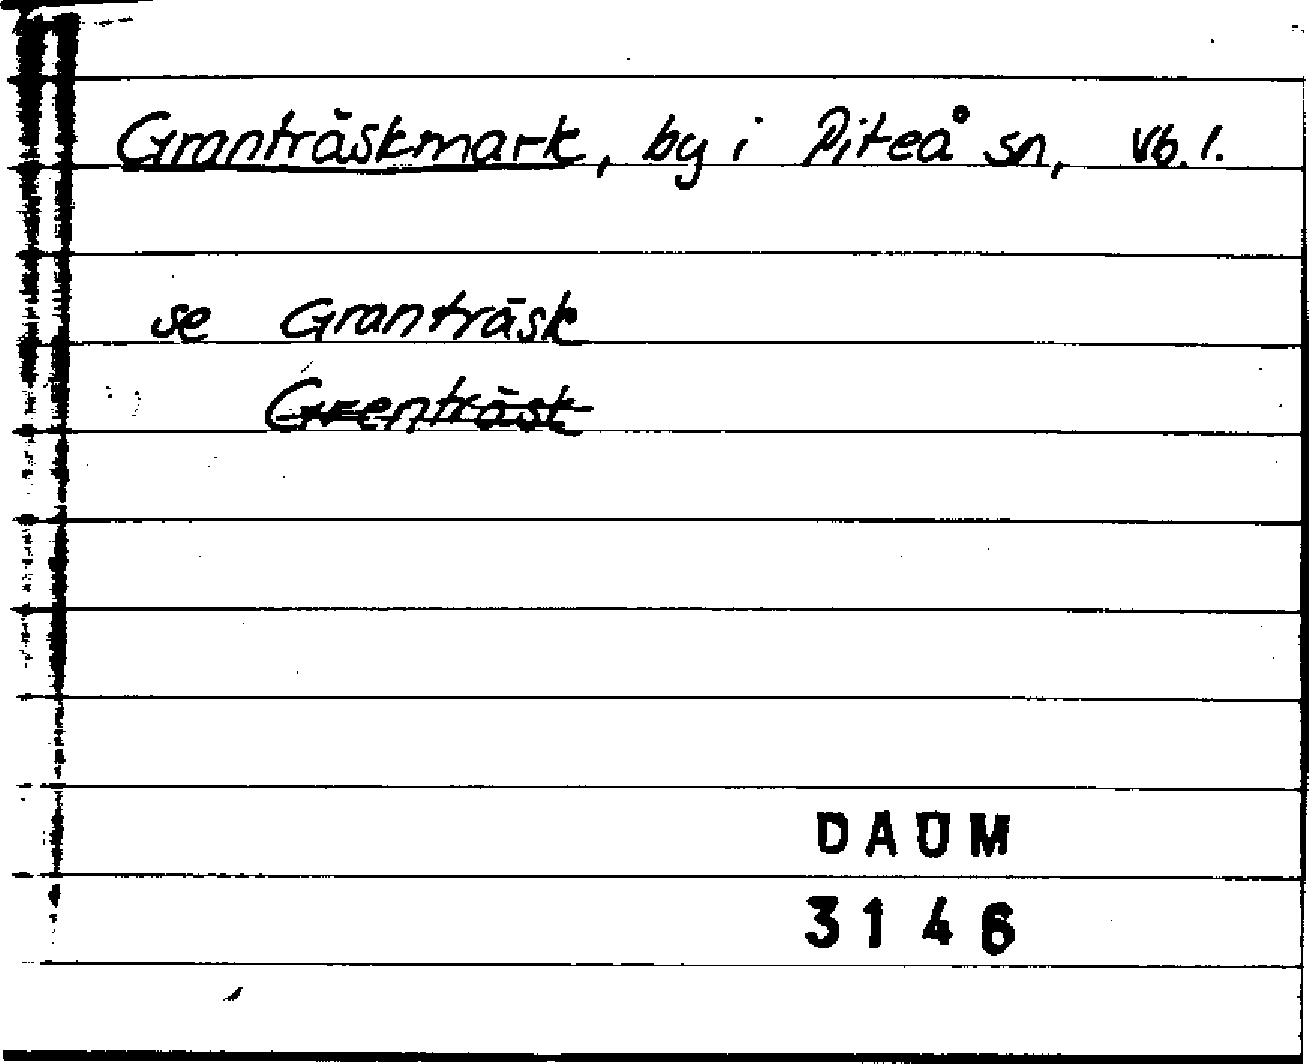 Granträskmark, by i Piteå sn, Vb. l.
se Granträsk
Grenträsk
DAUM
3146